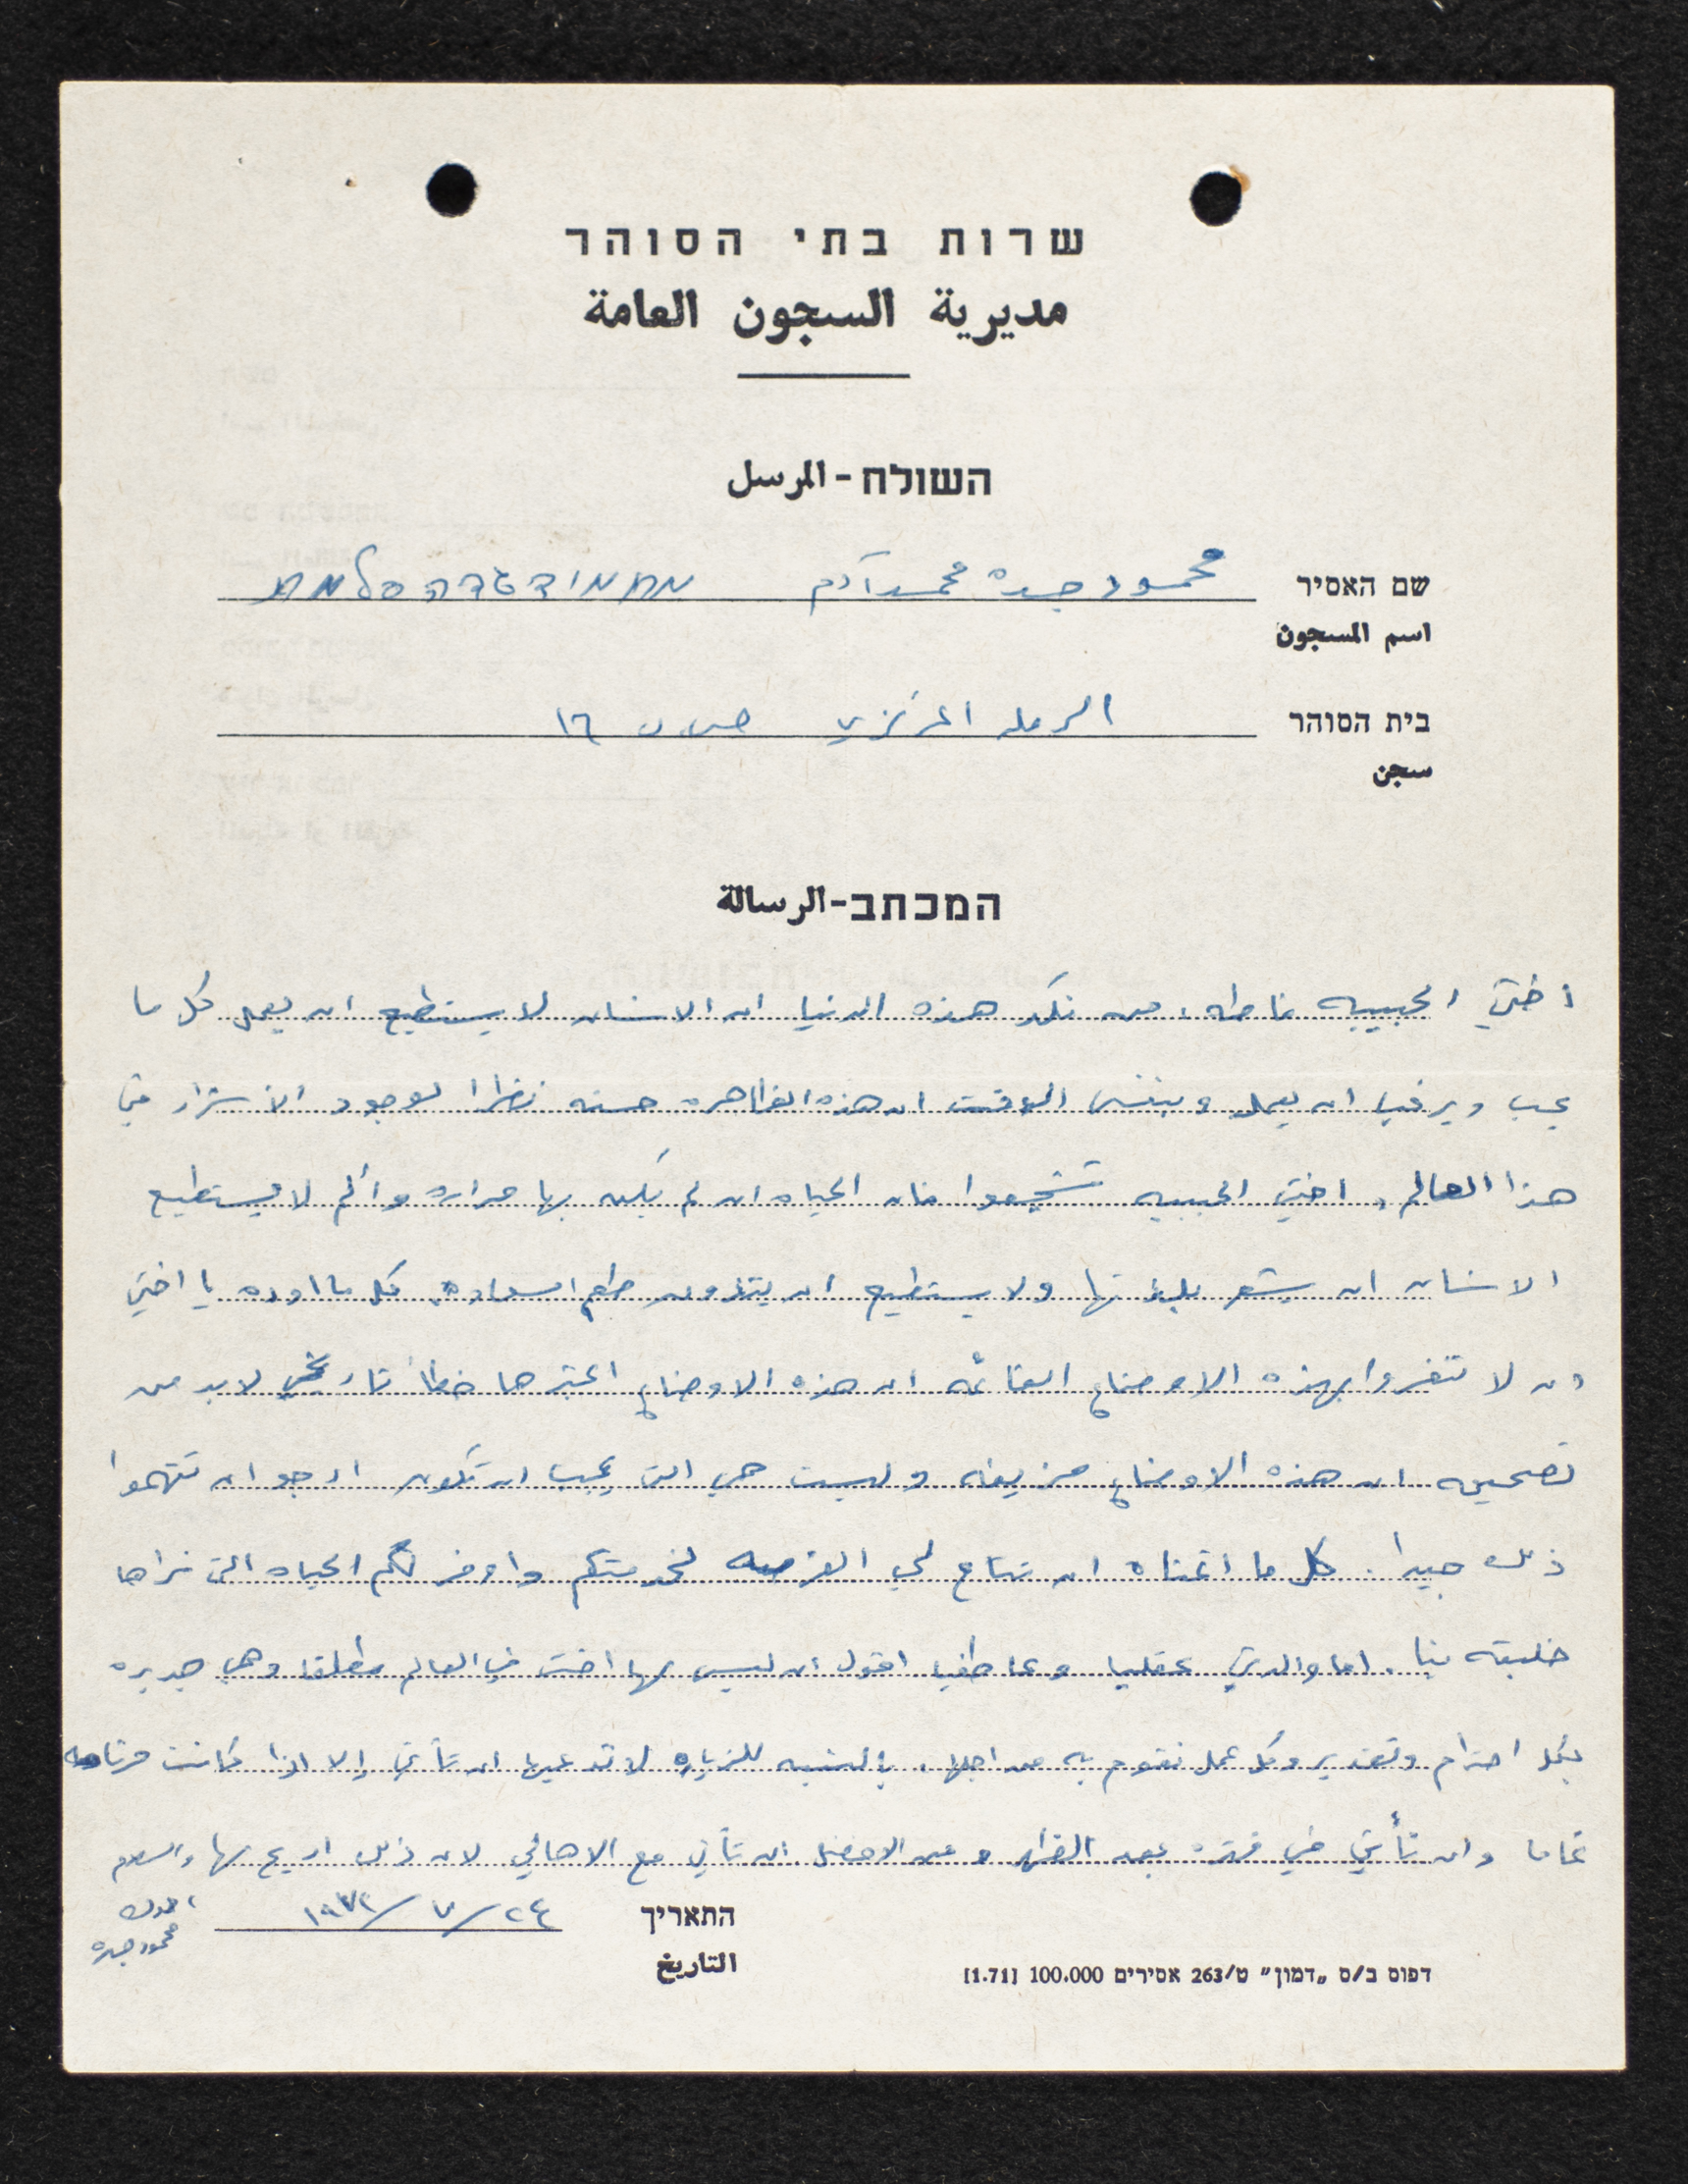 שרות בתי הסוהר
مديرية السجون العامة
השולח - المرسل
שם האסיר محمود جده محمد آدم
اسم المسجون
בית הסוהר الرمله المركزي ص.ب ١٦
سجن
המכתב - الرسالة
اختي الحبيبه فاطمه، من نكد هذه الدنيا ان الانسان لا يستطيع ان يعمل كل ما
يحب ويرغب ان يعمل وبنفس الوقت ان هذه الظاهره حسنه نظرا لوجود الاشرار في
هذا العالم. اختي الحبيبه تشجعوا فان الحياه ان لم يكن بها مراره وألم لا يستطيع
الانسان ان يشعر بلذتها ولا يستطيع ان يتذوق طعم السعاده. كل ما اوده يا اختي
ان لا تغروا بهذه الاوضاع القائمه ان هذه الاوضاع اعتبرها خطأ تاريخي لابد من
تصحيحه ان هذه الاوضاع مزيفه وليست هي التي يجب ان تكون ارجو ان تفهموا
ذلك جيدا. كل ما اتمناه ان تتاح لي الفرصه لخدمتكم واوفر لكم الحياه التي نراها
خليقه بنا. اما والدتي عقليا وعاطفيا اقول ان ليس لها اخت في العالم مطلقا وهي جديره
بكل احترام وتقدير وكل عمل نقوم به من اجلها. بالنسبه للزياره لا تدعيها ان تأتي إلا اذا كانت مرتاحه
تماما وان تأتي في فتره بعد الظهر و من الافضل ان تأتي مع الاهالي لان ذلك اريح لها والسلام
اخوك
محمود جده
התאריך ٢٤/٧/١٩٧٢
التاريخ
דפוס ב/ס „דמון" ט/263 אסירים 100.000 [1.71]